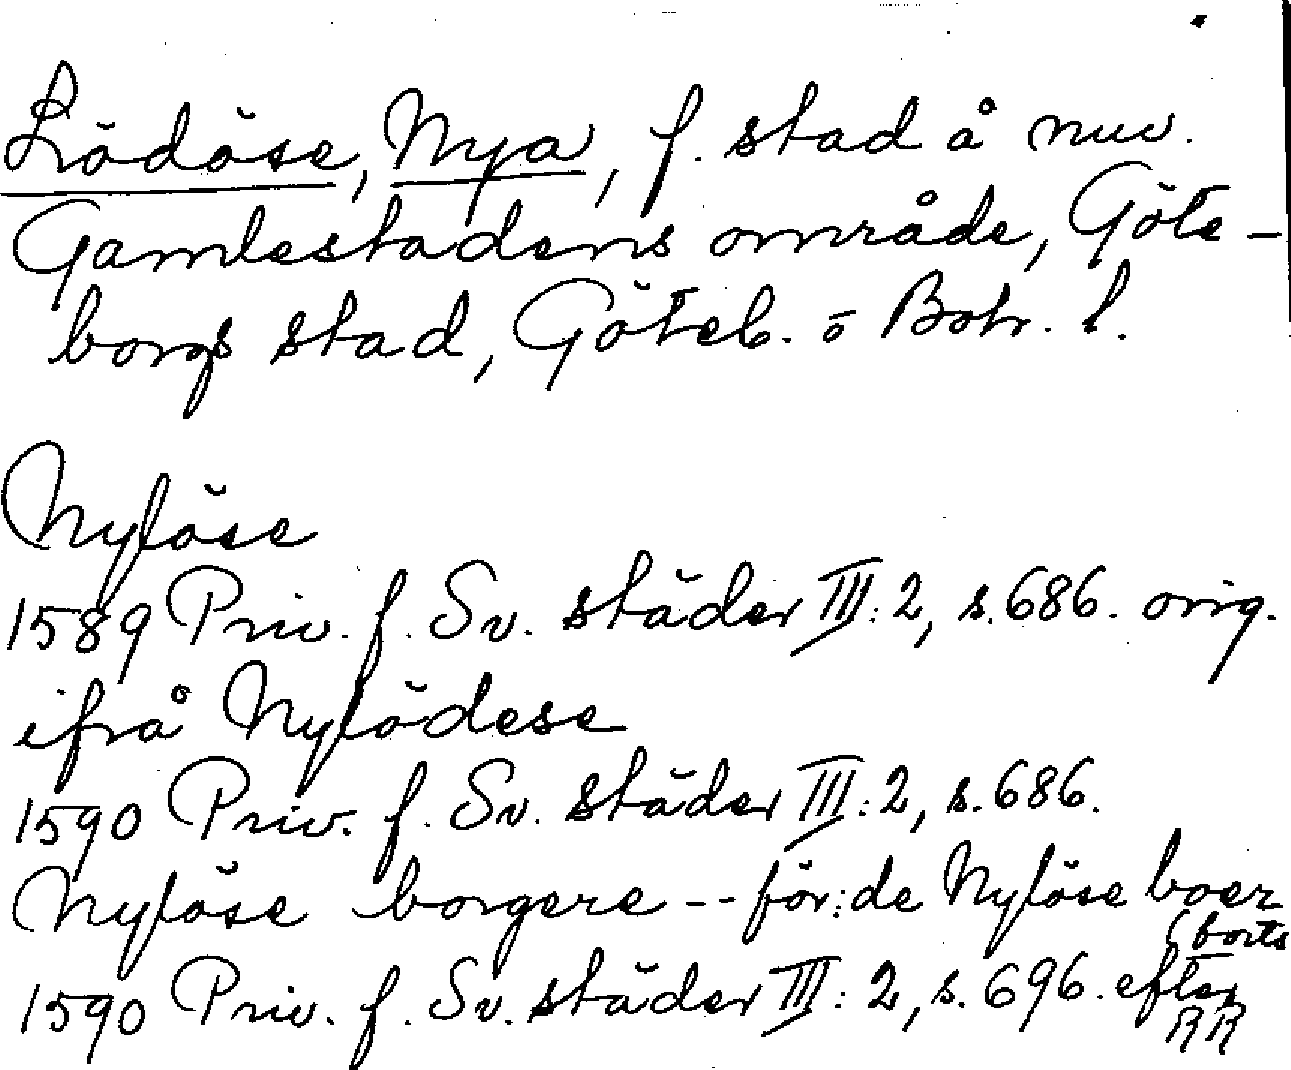 Lödöse, Nya, f. stad å nuv.
Gamlestadens område, Göte-
borgs stad, Göteb. o Boh. l.
Nylöse
1589 Priv. f. Sv. städer III:2, s.686. orig.
ifrå Nylödese
1590 Priv. f. Sv. städer III:2, s.686.
Nylöse borgere -- för:de Nylöse boer
(forts
1590 Priv. f. Sv. städer III:2, s.696. efter
RR